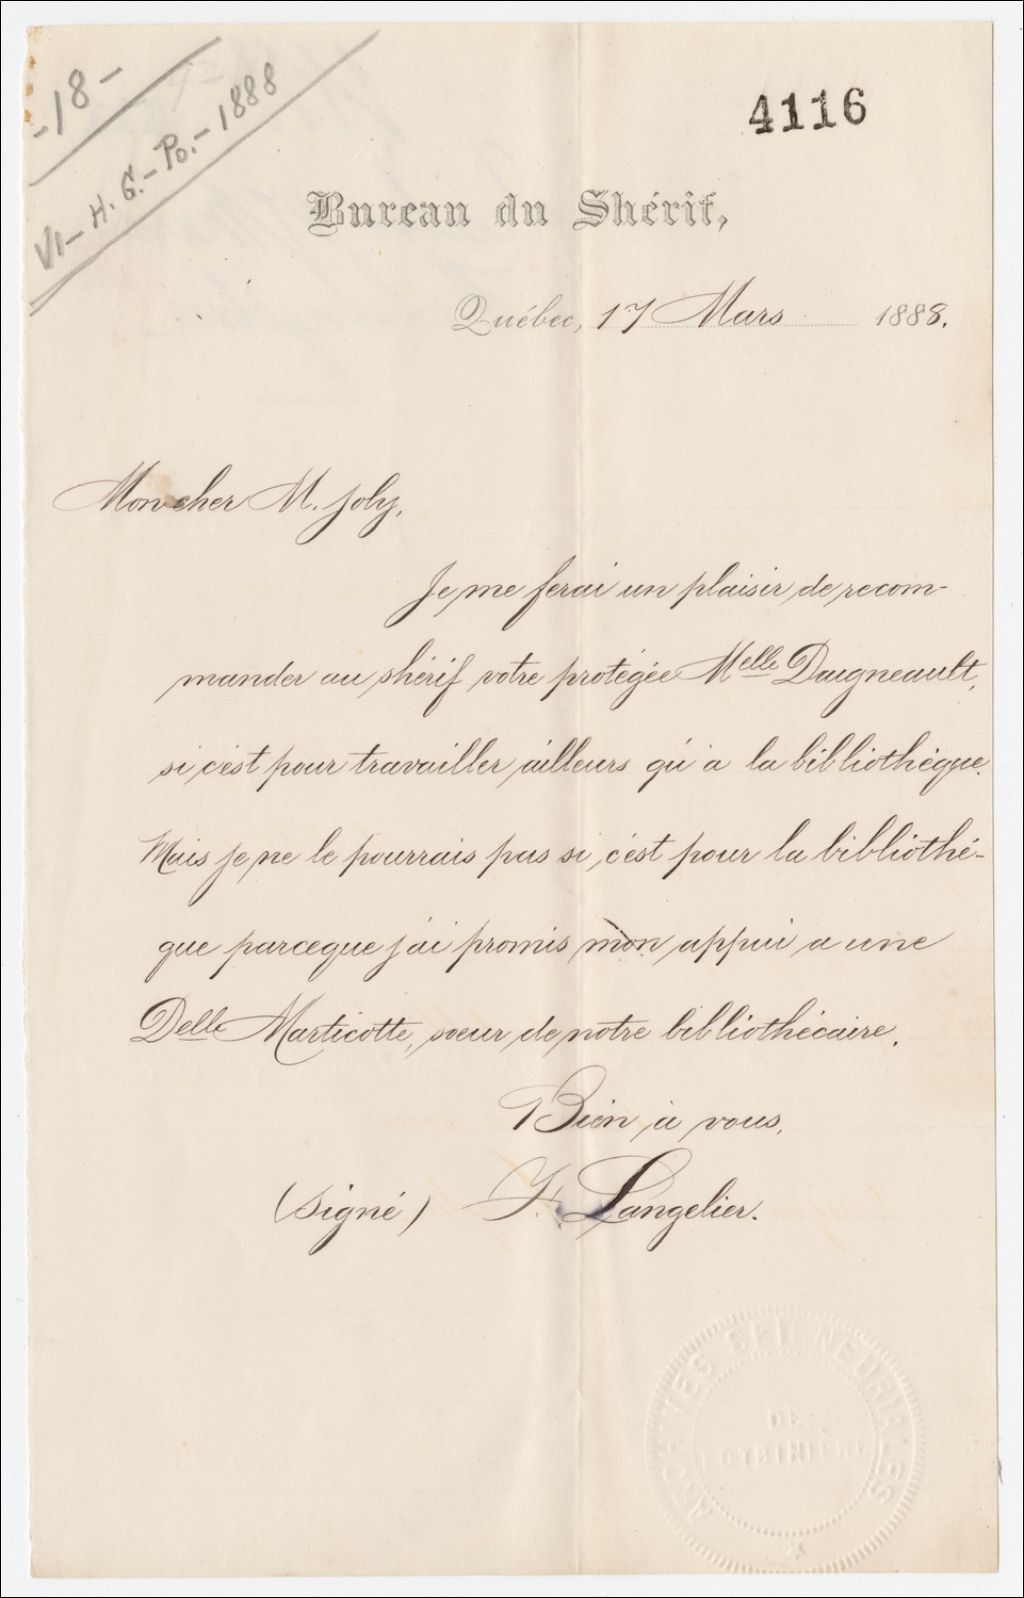 -18-
VI-H.G.-Po.-1888
4116
Bureau du Shérif,
Québec, 17 Mars 1888.
Mon cher M. Joly,
Je me ferai un plaisir de recom-
mander au shérif votre protégée Melle Daigneault,
si c'est pour travailler ailleurs qu'à la bibliothèque.
Mais je ne le pourrais pas si c'est pour la bibliothè-
que parceque j'ai promis mon appui a une
Delle Marticotte, soeur de notre bibliothécaire.
Bien à vous,
(signé) F. Langelier.
ARCHIVES SEIGNEURIALES
DE
LOTBINIÈRE